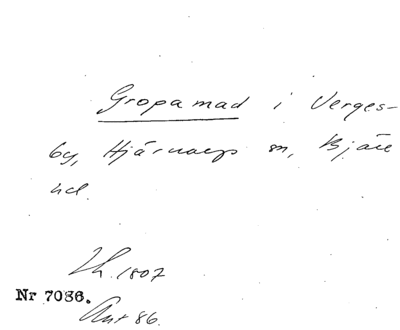 Gropamad i Verges-
by, Hjärnarps sn, Bjäre
hd.
Lh. 1807
Nr 7086.
Ant 86.